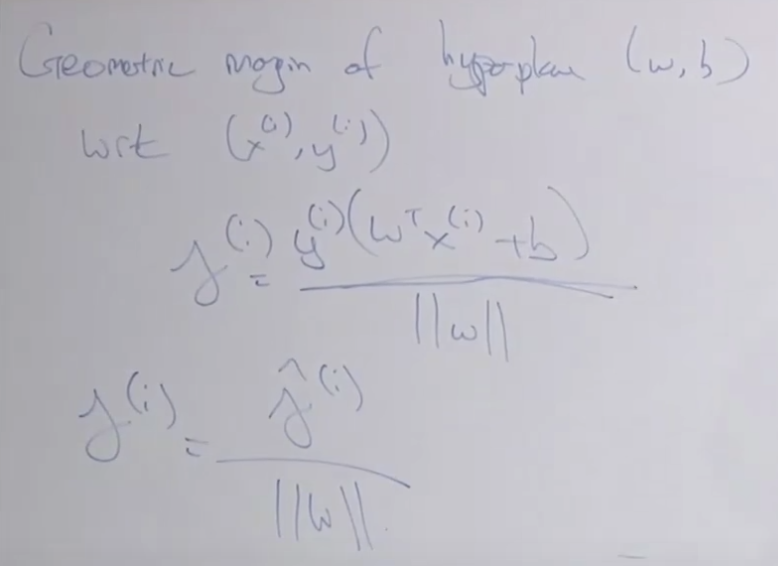 Geometric margin of hyperplane (w, b)
wrt (x^(i), y^(i))
γ^(i) = y^(i)(w^T x^(i) + b) / ||w||
γ^(i) = γ̂^(i) / ||w||